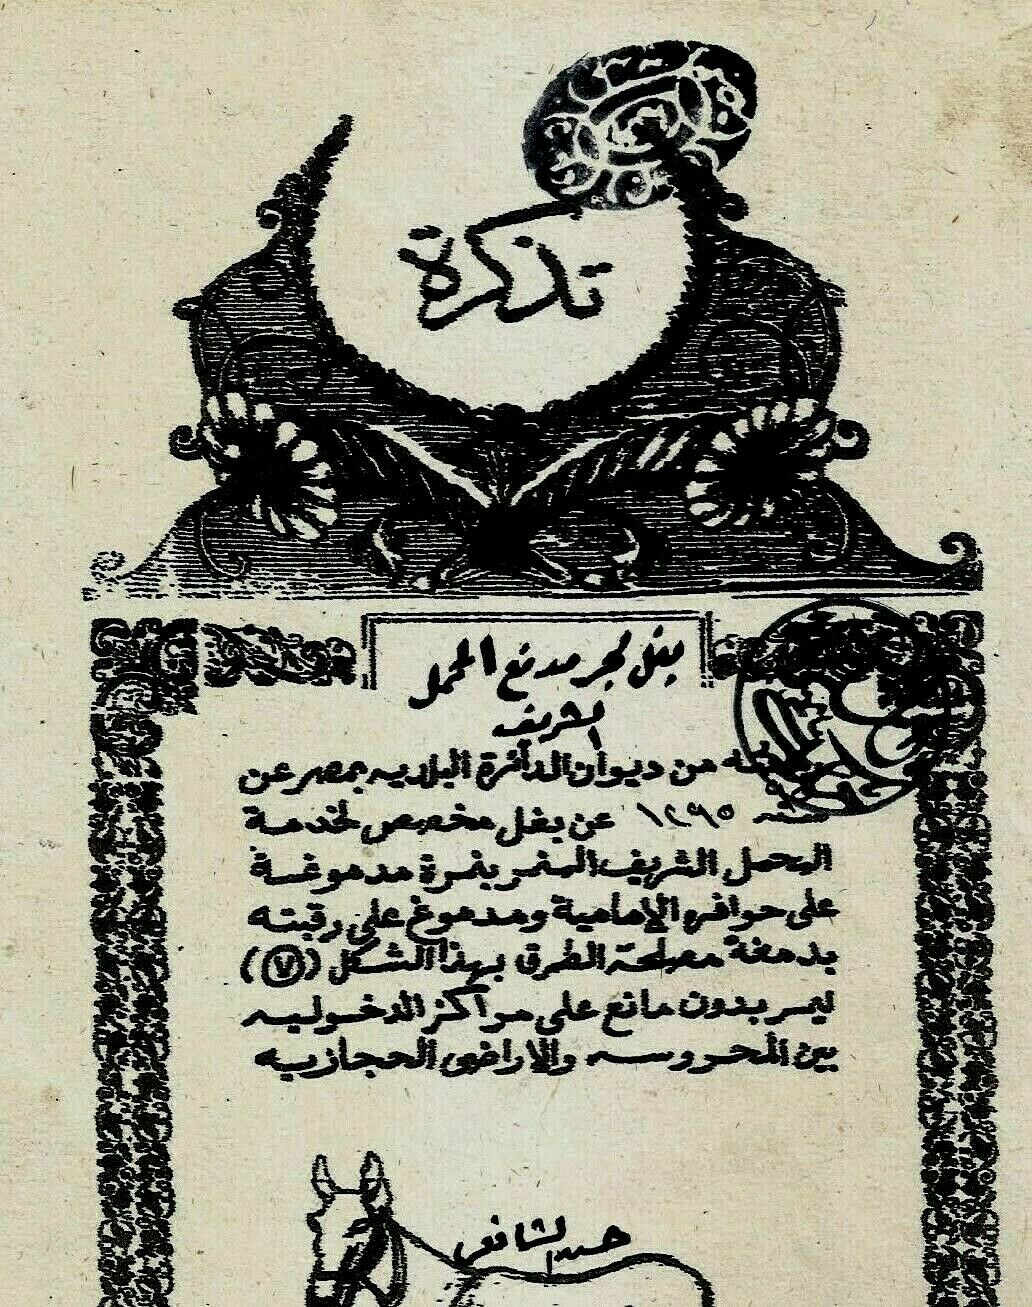 تذكرة
بغل لجر مدفع المحمل
الشريف
من ديوان الدائرة البلديه بمصر عن
سنه ١٢٩٥ عن بغل مخصص لخدمة
المحمل الشريف المنمر بنمرة مدموغة
على حوافره الإمامية ومدموغ على رقبته
بدمغة مصلحة الطرق بهذا الشكل (٧)
ليمر بدون مانع على مراكز الدخوليه
بين المحروسه والاراضى الحجازيه
الشافعى